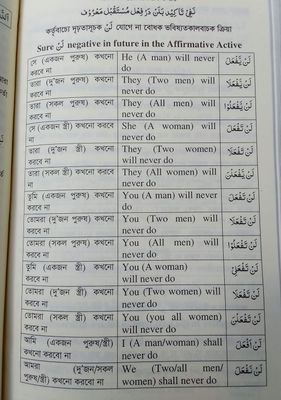 نَفِیْ تَاکِیْد بَلَنْ دَر فِعْل مُسْتَقْبِل مَعْرُوْف
কর্তৃবাচ্যে দৃঢ়তাসূচক لَنْ যোগে না বোধক ভবিষ্যতকালবাচক ক্রিয়া
Sure لَنْ negative in future in the Affirmative Active
সে (একজন পুরুষ) কখনো He (A man) will never لَنْ يَّفْعَلَ
করবে না do
তারা (দু'জন পুরুষ) কখনো They (Two men) will لَنْ يَّفْعَلَا
করবে না never do
তারা (সকল পুরুষ) কখনো They (All men) will لَنْ يَّفْعَلُوْا
করবে না never do
সে (একজন স্ত্রী) কখনো করবে She (A woman) will لَنْ تَفْعَلَ
না never do
তারা (দু'জন স্ত্রী) কখনো They (Two women) لَنْ تَفْعَلَا
করবে না will never do
তারা (সকল স্ত্রী) কখনো They (All women) will لَنْ يَّفْعَلْنَ
করবে না never do
তুমি (একজন পুরুষ) কখনো You (A man) will never لَنْ تَفْعَلَ
করবে না do
তোমরা (দু'জন পুরুষ) কখনো You (Two men) will لَنْ تَفْعَلَا
করবে না never do
তোমরা (সকল পুরুষ) কখনো You (All men) will لَنْ تَفْعَلُوْا
করবে না never do
তুমি (একজন স্ত্রী) কখনো You (A woman) لَنْ تَفْعَلِيْ
করবে না will never do
তোমরা (দু'জন স্ত্রী) কখনো You (Two women) will لَنْ تَفْعَلَا
করবে না never do
তোমরা (সকল স্ত্রী) কখনো You (you all women) لَنْ تَفْعَلْنَ
করবে না will never do
আমি (একজন পুরুষ/স্ত্রী) I (A man/woman) shall لَنْ اَفْعَلَ
কখনো করবো না never do
আমরা (দু'জন/সকল We (Two/all men/ لَنْ نَّفْعَلَ
পুরুষ/স্ত্রী) কখনো করবো না women) shall never do